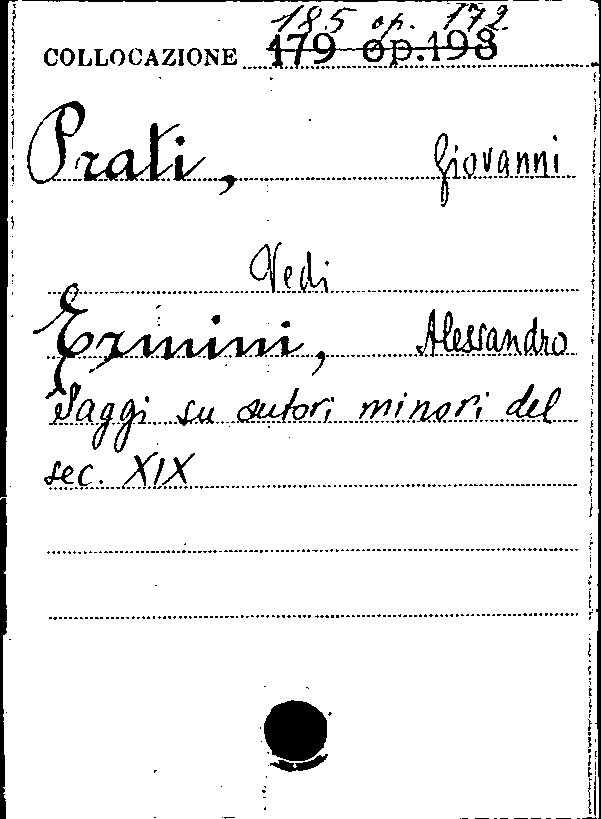 185 op. 172
COLLOCAZIONE 179 op.198
Prati, Giovanni
Vedi
Ermini, Alessandro
Saggi su autori minori del
sec. XIX